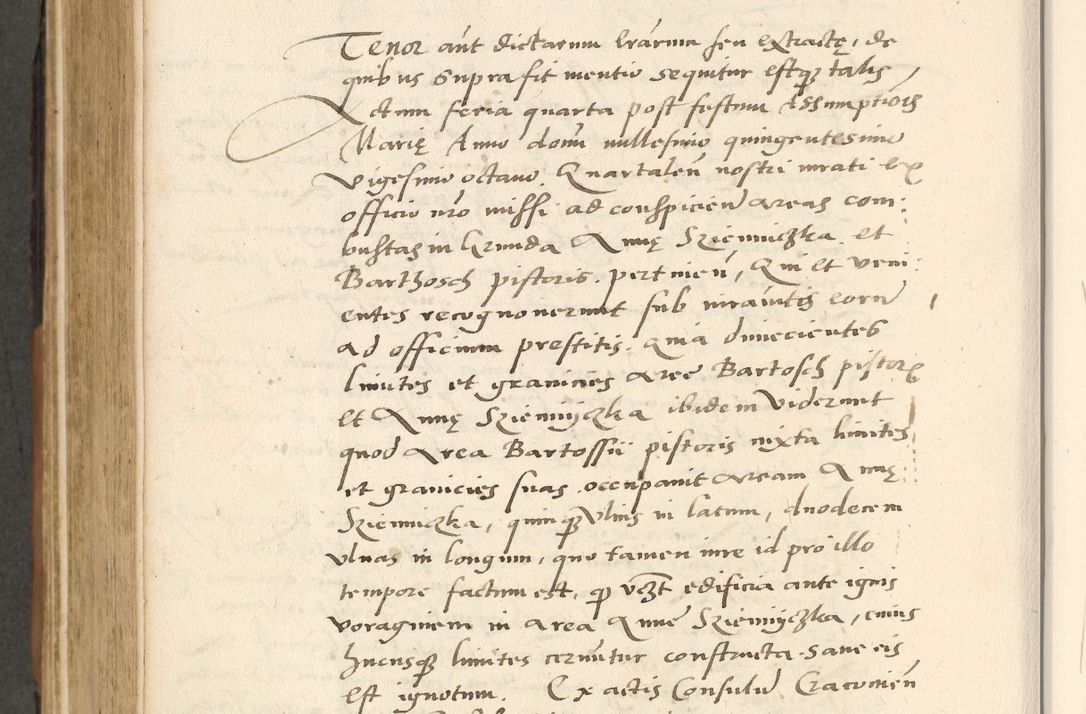 Tenor aut dictarum lrarum seu extractę, de
quibus supra fit mentio sequitur estq3 talis,
Actum feria quarta post festum Assumptiois
Marię Anno domi millesimo quingentesimo
vigesimo octavo. Quartalen nostri iurati ex
officio nro missi ad conspicien areas com:
bustas in Grunda Annę Sziemiczka et
Barthosch pistoris. pertinen, Qui et veni:
entes recognoverunt sub iuramtis eorum
ad officium prestitis. quia dimecientes
limites et granicies aree Bartosch pistoris
et Annę Sziemiyczka ibidem viderunt
quod area Bartossii pistoris iuxta limites
et granicies suas occupavit aream Annę
Sziemiczka, quinq3 Ulnis in latum, duodecem
ulnas in longum, quo tamen iure id pro illo
tempore factum est, q vczt edificia ante ignis
voraginem in area Anne Sziemiyczka, cuius
hucusq3 limites cernuntur constructa. sane eis
est ignotum. Ex actis Consulum Cracovien